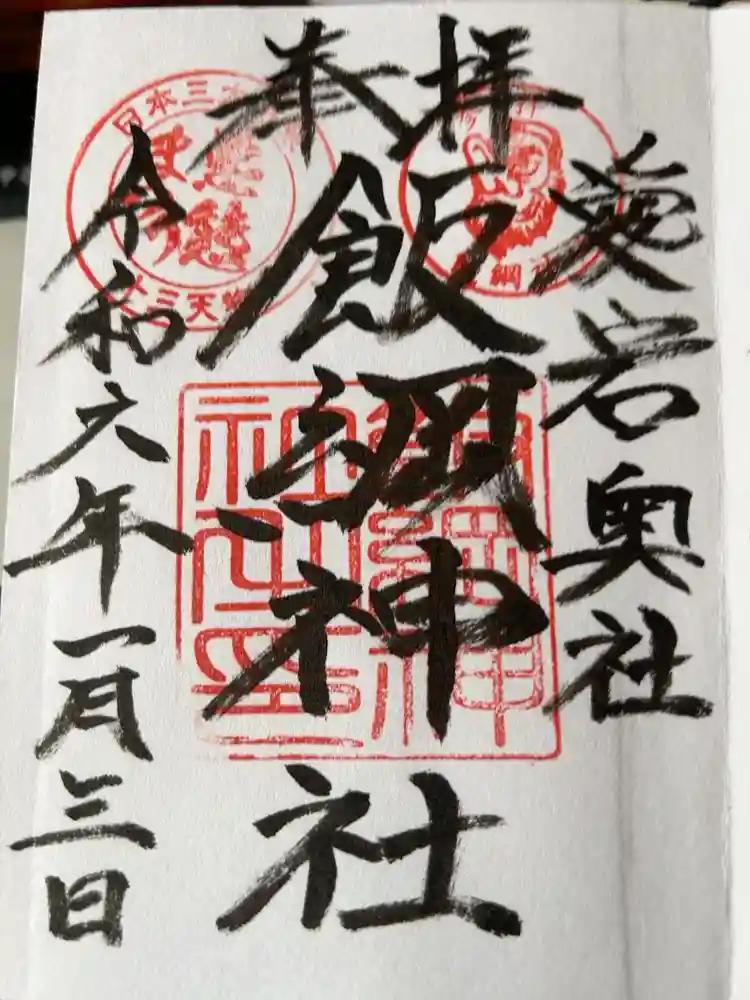 奉拝
愛宕奥社
飯綱神社
令和六年一月三日
飯綱神社之印
日本三大
十三天狗